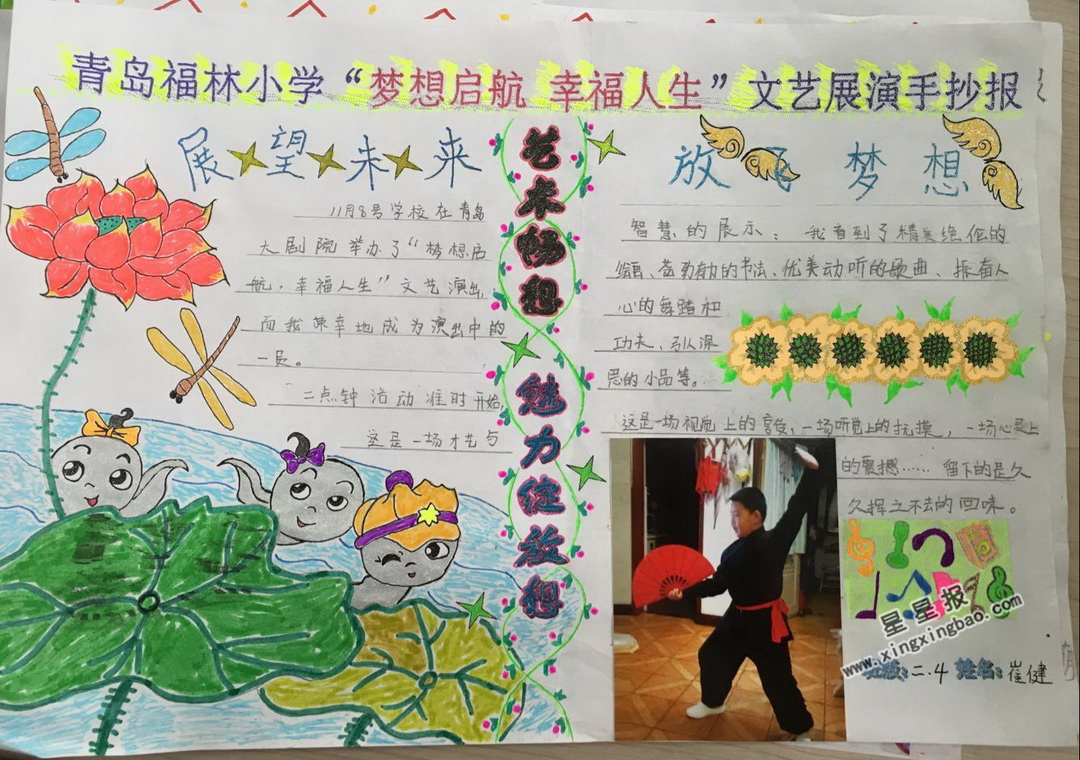 青岛福林小学“梦想启航 幸福人生”文艺展演手抄报
展望未来
11月8号学校在青岛
大剧院举办了“梦想启
航，幸福人生”文艺演出，
而我荣幸地成为演出中的
一员。
二点钟活动准时开始，
这是一场才艺与
艺术畅想
魅力绽放想
放飞梦想
智慧的展示：我看到了精美绝伦的
苍劲有力的书法、优美动听的歌曲、振奋人
心的舞蹈和
功夫、引人深
思的小品等。
这是一场视觉上的享受，一场听觉上的抚摸，一场心灵上
的震撼……留下的是久
久挥之不去的回味。
星星报
www.xingxingbao.com
班级：二.4 姓名：崔健